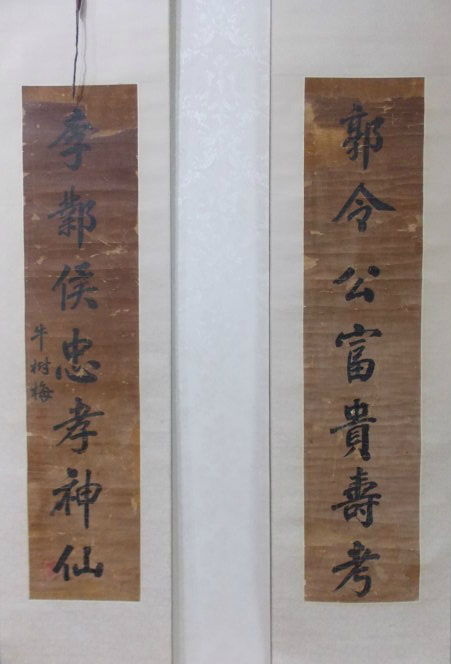 郭令公富貴壽考
李鄴侯忠孝神仙
牛樹梅